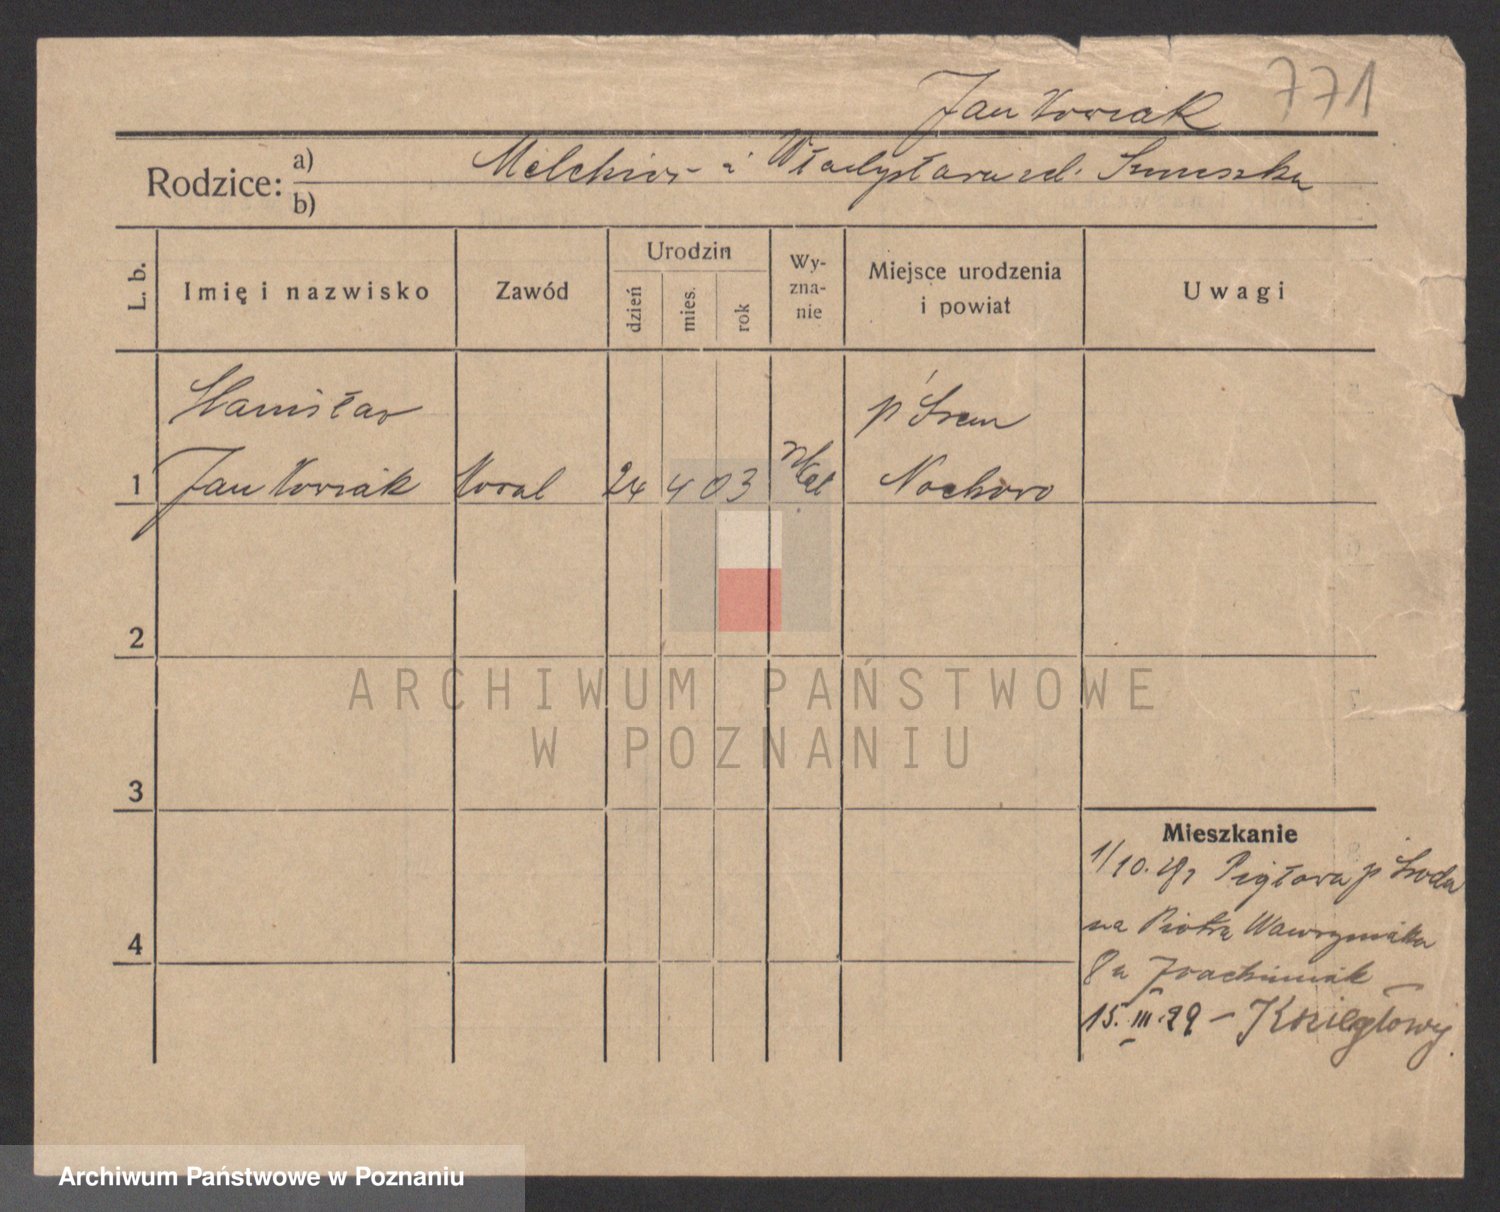 771
Jankowiak
Rodzice: a) Melchior i Władysława zd.
b)
L. b.
Imię i nazwisko
Zawód
Urodzin
dzień
mies.
rok
Wy-
zna-
nie
Miejsce urodzenia
i powiat
Uwagi
Stanisław
p Śrem
1 Jankowiak Kowal 24 4 03 Nochowo
2
3
4
ARCHIWUM PAŃSTWOWE
W POZNANIU
Mieszkanie
1/10. Pigłowa p Środa
na Piotra Wawrzyniaka
8 u Joachimiak
15. III. 29 – Koziegłowy
Archiwum Państwowe w Poznaniu